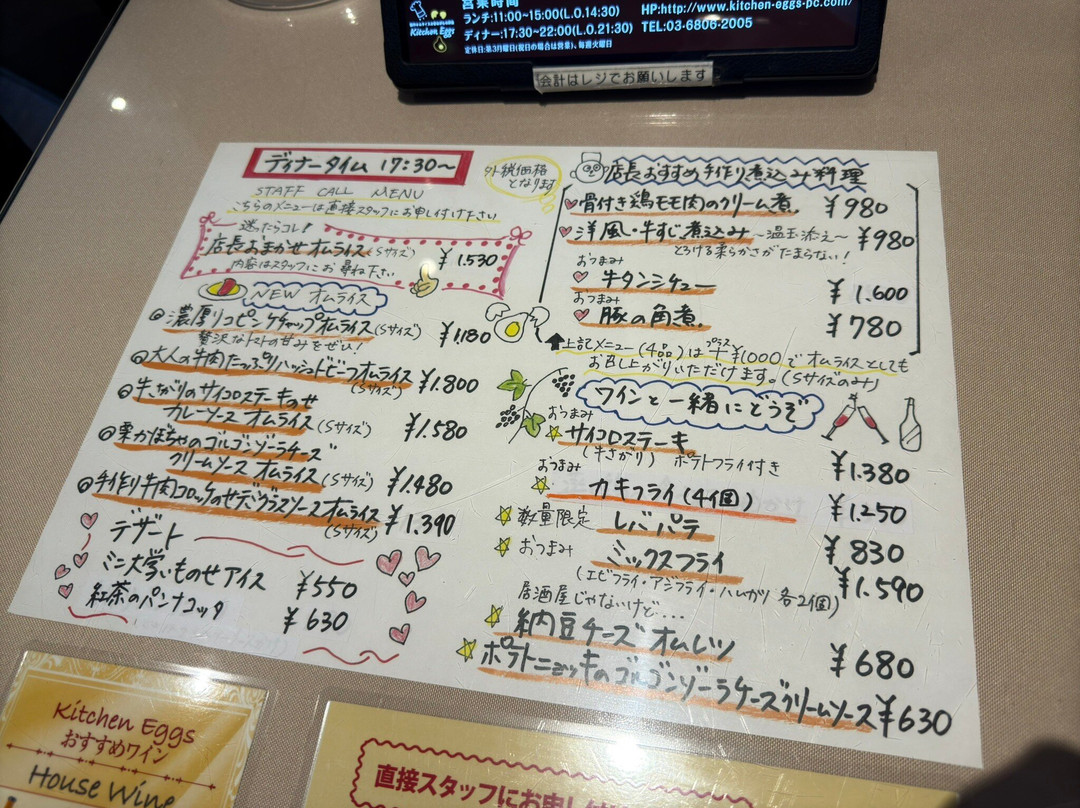 営業時間
ランチ:11:00~15:00(L.O.14:30)
ディナー:17:30~22:00(L.O.21:30)
定休日:第3月曜日(祝日の場合は営業)、毎週火曜日
HP:http://www.kitchen-eggs-pc.com/
TEL:03-6806-2005
Kitchen Eggs
会計はレジでお願いします
ディナータイム 17:30~
外税価格
となります
STAFF CALL MENU
こちらのメニューは直接スタッフにお申し付け下さい
迷ったらコレ!
店長おまかせオムライス(Sサイズ) ¥1.530
内容はスタッフにお尋ね下さい
NEW オムライス
濃厚リコピンケチャップオムライス(Sサイズ) ¥1,180
贅沢なトマトの甘みをぜひ!
大人の牛肉たっぷりハッシュドビーフオムライス
(Sサイズ) ¥1.800
牛さがりのサイコロステーキのせ
カレーソース オムライス(Sサイズ) ¥1.580
栗かぼちゃのゴルゴンゾーラチーズ
クリームソース オムライス(Sサイズ) ¥1.480
手作り牛肉コロッケのせデミグラスソースオムライス
(Sサイズ) ¥1.390
デザート
ミニ大学いものせアイス ¥550
紅茶のパンナコッタ ¥630
店長おすすめ手作り煮込み料理
骨付き鶏モモ肉のクリーム煮 ¥980
洋風・牛すじ煮込み~温玉添え~ ¥980
とろける柔らかさがたまらない!
おつまみ
牛タンシチュー ¥1.600
おつまみ
豚の角煮 ¥780
上記メニュー(4品)は+プラス¥1000でオムライスとしても
お召し上がりいただけます。(Sサイズのみ)
ワインと一緒にどうぞ
おつまみ
サイコロステーキ
(牛さがり) ポテトフライ付き ¥1.380
おつまみ
カキフライ(4個) ¥1.250
数量限定 レバパテ ¥830
おつまみ
ミックスフライ ¥1.590
(エビフライ・アジフライ・ハムカツ 各2個)
居酒屋じゃないけど....
納豆チーズオムレツ ¥680
ポテトニョッキのゴルゴンゾーラチーズクリームソース ¥630
Kitchen Eggs
おすすめワイン
House Wine
直接スタッフにお申し付け